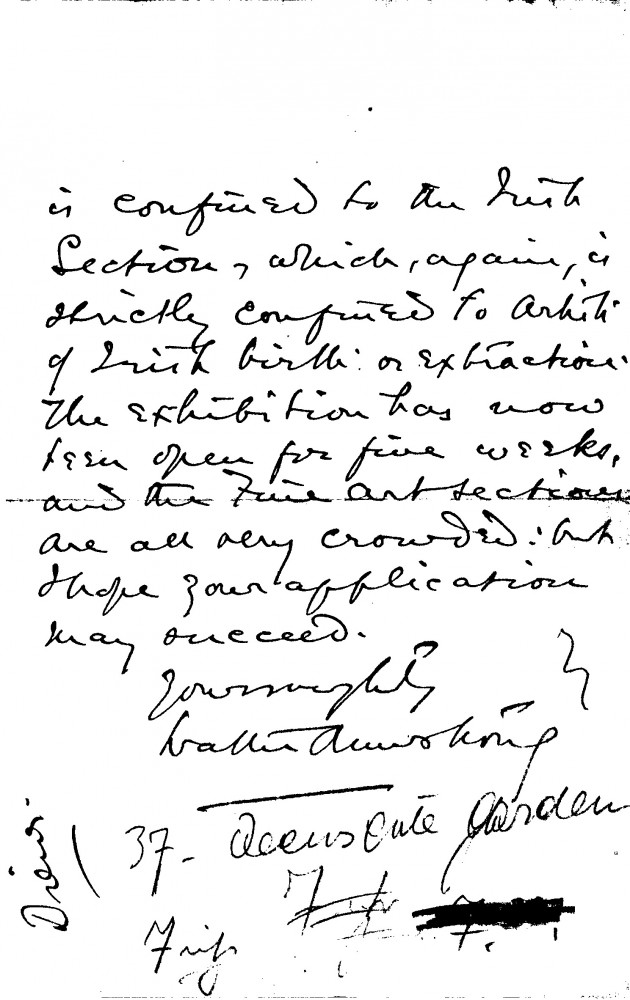 is confined to the Irish
Section, which, again, is
strictly confined to Artists
of Irish birth or extraction.
The exhibition has now
been open for five weeks,
and the Fine Art sections
are all very crowded: but
I hope your application
may succeed.
Yours
Walter Armstrong
37. Queens Gate Garden
7.